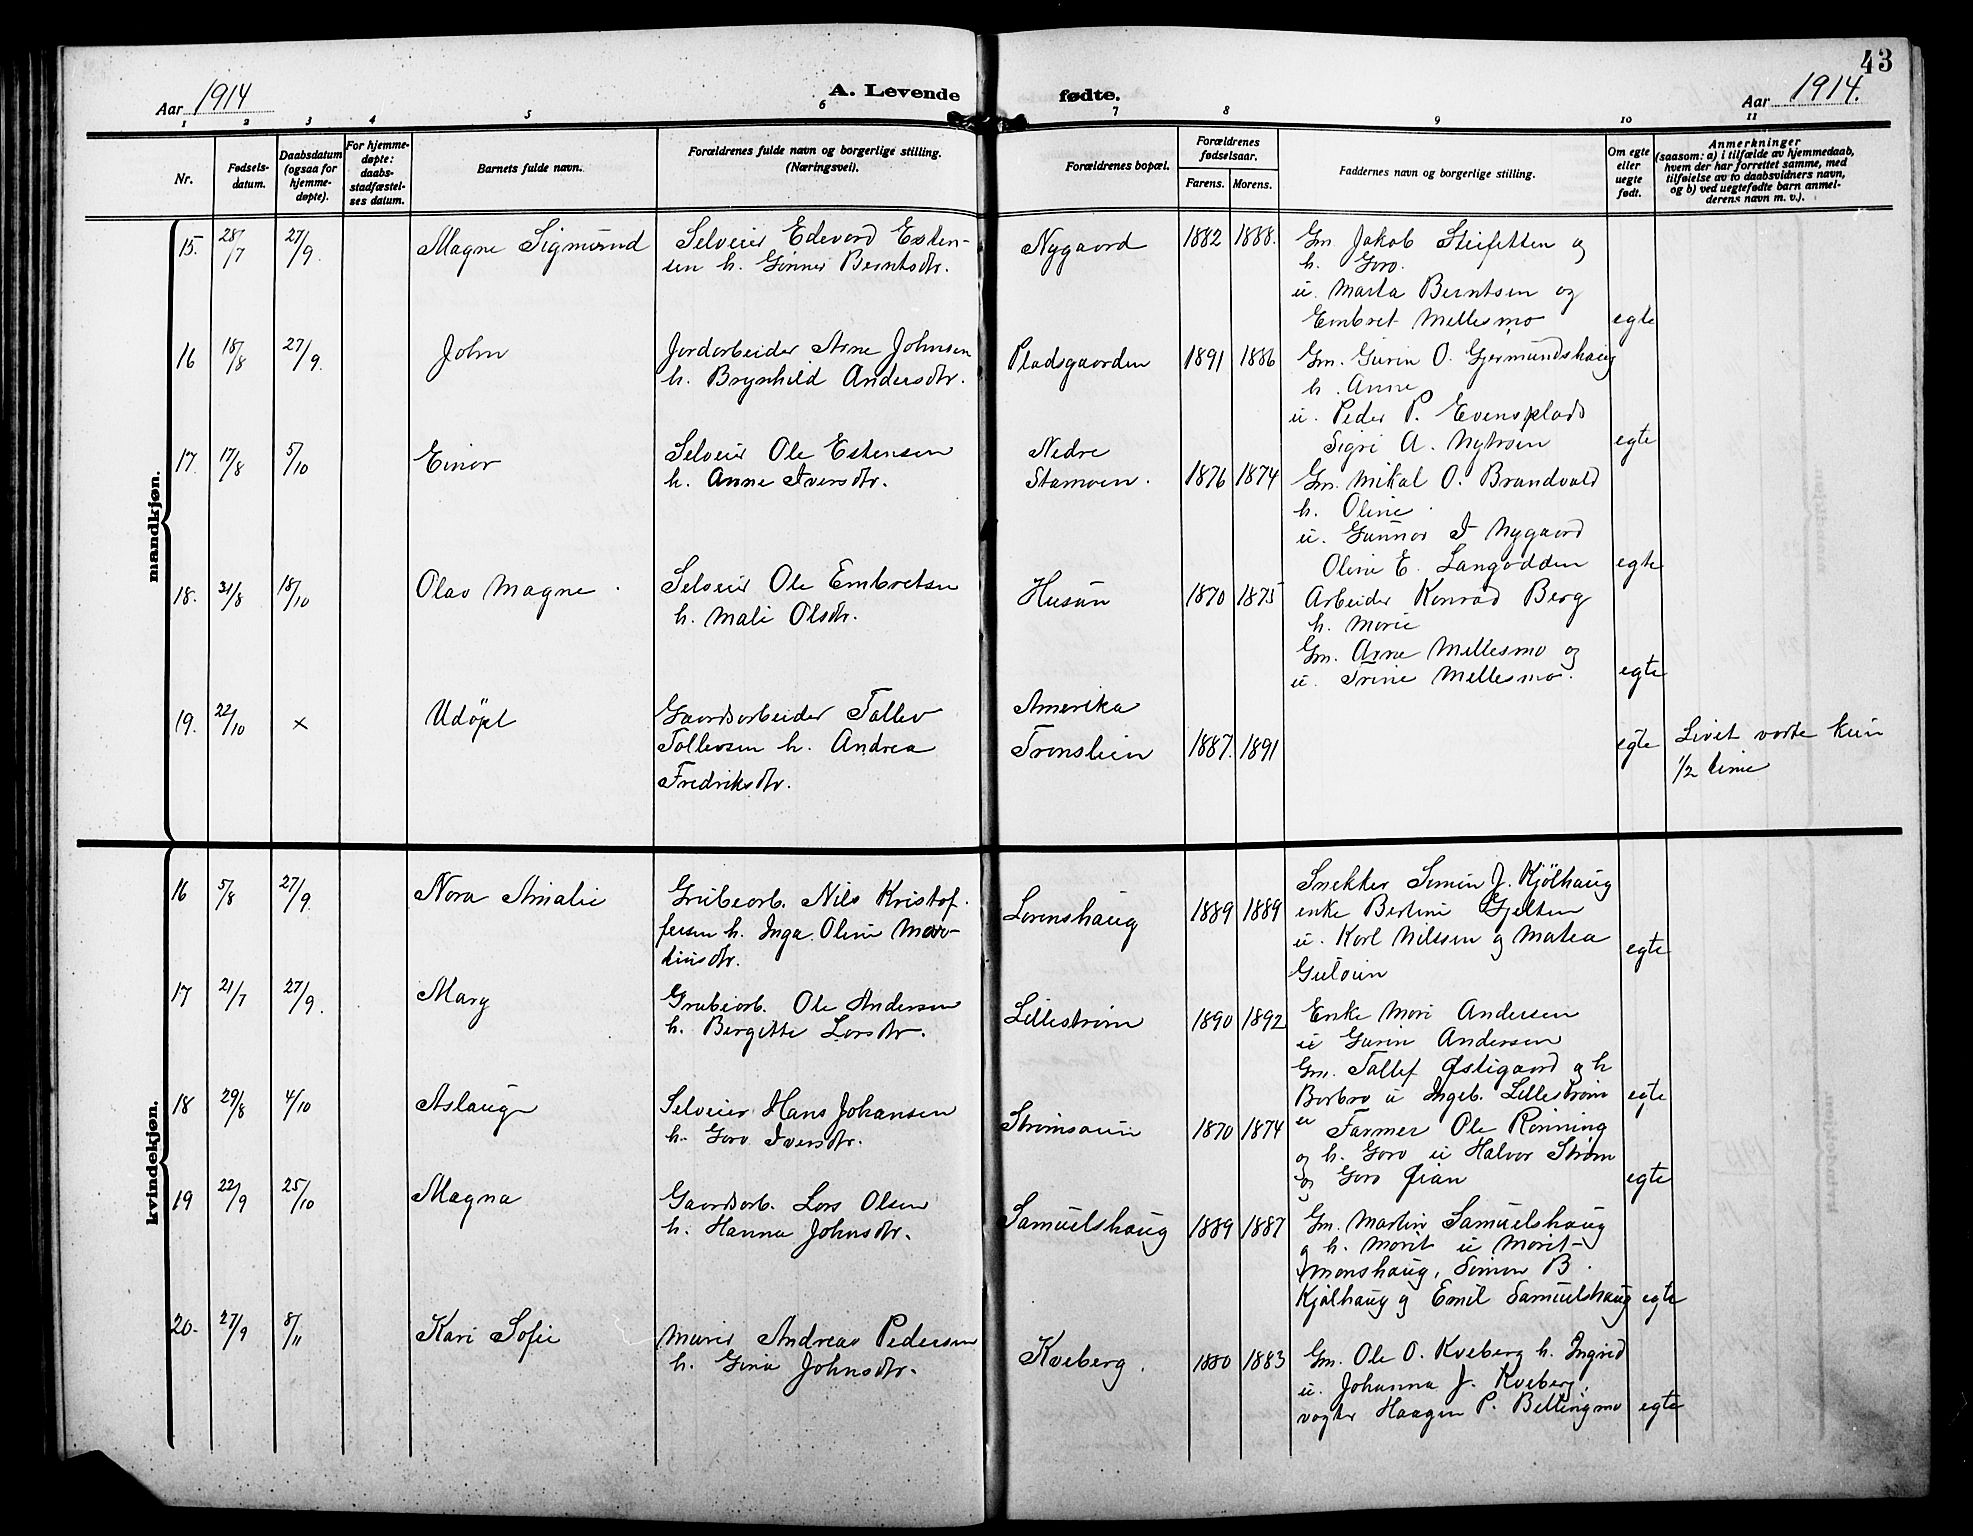 43
Aar 1914
A. Levende fødte.
Aar 1914.
1 2 3 4 5 6 7 8 9 10 11
Nr.
Fødsels-
datum.
Daabsdatum
(ogsaa for
hjemme-
døpte).
For hjemme-
døpte:
daabs-
stadfæstel-
ses datum.
Barnets fulde navn.
Forældrenes fulde navn og borgerlige stilling.
(Næringsvei).
Forældrenes bopæl.
Forældrenes
fødselsaar.
Farens. Morens.
Faddernes navn og borgerlige stilling.
Om egte
eller
uegte
født.
Anmerkninger
(saasom: a) i tilfælde av hjemmedaab,
hvem der har forrettet samme, med
tilføielse av to daabsvidners navn,
og b) ved uegtefødte barn anmel-
derens navn m. v.).
mandkjøn.
15. 28/7 27/9. Magne Sigmund
Selveier Edevard Esten-
sen h. Gunner Berntsdtr.
Nygaard 1882 1888.
Gm Jakob Steifetten og
h. Goro.
u. Marta Berntsen og
Embret Mellesmo egte
16 18/8 27/9. John
Jordarbeider Arne Johnsen
h. Brynhild Andersdtr.
Pladsgaarden 1891 1886
Gm. Gurin O. Gjermundshaug
h. Anne
u. Peder P. Evensplads
Sigri A. Nytrøen egte
17. 17/8 5/10 Einar
Selveier Ole Estensen
h. Anne Iversdtr.
Nedre
Stamoen. 1876 1874
Gm. Mikal O. Brandvold
h. Oline.
u. Gunnar I Nygaard
Oline E. Langodden egte
18. 31/8 18/10 Olav Magne.
Selveier Ole Embretsen
h. Mali Olsdtr.
Husun 1870 1875
Arbeider Konrad Berg
h. Marie
Gm. Arne Mellesmo og
u. Trine Mellesmo. egte
19. 22/10 × Udöpt
Gaardsarbeider Tollev
Tollevsen h. Andrea
Fredriksdtr.
Amerika
Tronslien 1887. 1891
egte
Livet varte kun
1/2 time
kvindekjøn.
16 5/8 27/9. Nora Amalie
Grubearb. Nils Kristof-
fersen h. Inga Oline Mar-
tinsdtr.
Lorenshaug 1889 1889
Snekker Simen J. Kjölhaug
enke Bertine Gjelten
u. Karl Nilssen og Matea
Guloien egte
17 21/7 27/9. Mary
Grubearb. Ole Andersen
h. Bergitte Larsdtr.
Lillestrøm 1890 1892
Enke Mari Andersen
u Gurin Andersen
Gm. Tollef Østigaard og h
Barbro u Ingeb. Lillestrøm egte
18 29/8 4/10 Aslaug
Selveier Hans Johansen
h. Goro Iversdtr.
Strømsøien 1870 1874
Farmer Ole Rønning
og h. Goro u Halvor Strøm
og Goro Øian egte
19 22/9 25/10 Magna
Gaardsarb. Lars Olsen
h. Hanna Johnsdtr.
Samuelshaug 1889 1887
Gm. Martin Samuelshaug
og h. Marit u Marit
Monshaug, Simen B.
Kjølhaug og Emil Samuelshaug egte
20. 27/9 8/11 Kari Sofie
Murer Andreas Pedersen
h. Gina Johnsdtr.
Kveberg. 1880 1883
Gm. Ole O. Kveberg h. Ingrid
u. Johanna J. Kveberg,
vogter Haagen P. Bellingmo egte